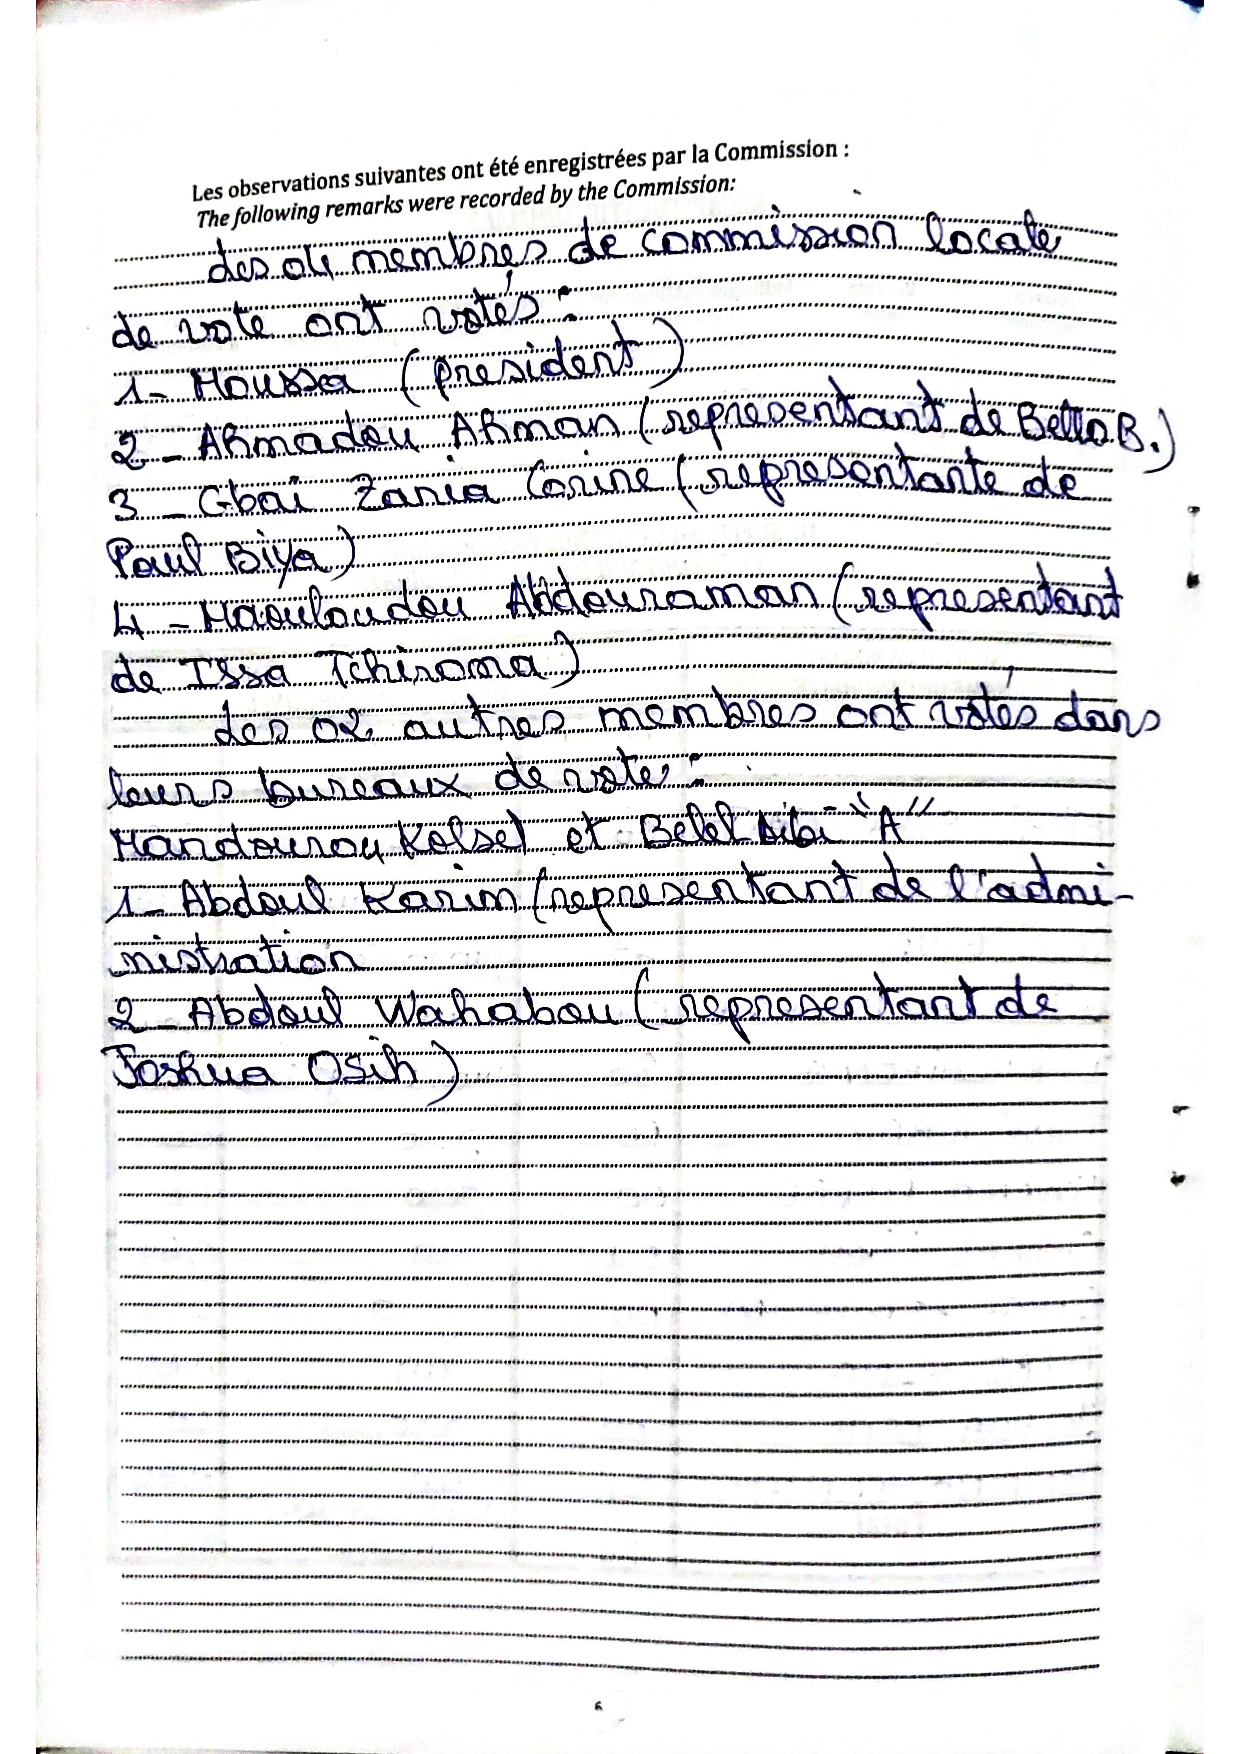 Les observations suivantes ont été enregistrées par la Commission :
The following remarks were recorded by the Commission:
des 04 membres de commission locale
de vote ont votés :
1- Moussa (president)
2 - Ahmadou Ahman (representant de Bello B.)
3 - Gbai Zania Corine (representante de
Paul Biya)
4 - Maouloudou Abdouraman (representant
de Issa Tchiroma)
des 02 autres membres ont votés dans
leurs bureaux de vote :
Mandourou Kolsel et Belel "A"
1- Abdoul Karim (representant de l'admi-
nistration
2 - Abdoul Wahabou (representant de
Joshua Osih)
6